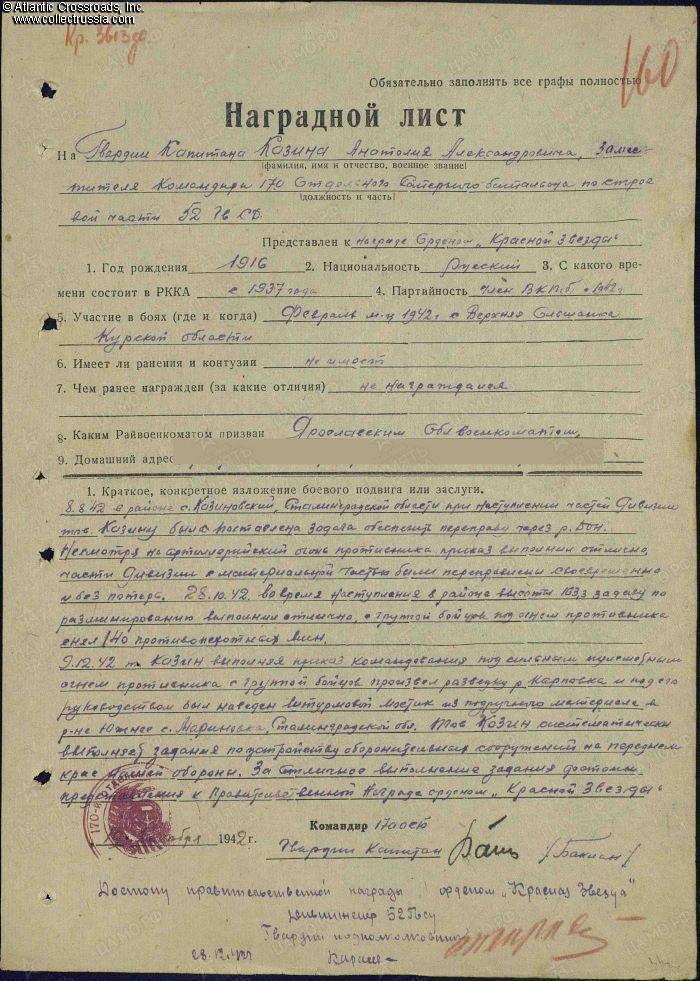 © Atlantic Crossroads, Inc.
www.collectrussia.com
Кр. Звезда
160
Обязательно заполнять все графы полностью
Наградной лист
На Гвардии Капитана Казина Анатолия Александровича, Заме-
(фамилия, имя и отчество, военное звание)
стителя Командира 170 Отдельного Саперного батальона по строе
(должность и часть)
вой части 52 Гв СД
Представлен к награде Орденом „Красной Звезды"
1. Год рождения 1916 2. Национальность Русский 3. С какого вре-
мени состоит в РККА с 1937 года 4. Партийность Член ВКП(б) с 1942 г
5. Участие в боях (где и когда) Февраль м-ц 1942 г с Верхняя Ольшанка
Курской области
6. Имеет ли ранения и контузии не имеет
7. Чем ранее награжден (за какие отличия) не награждался
8. Каким Райвоенкоматом призван Ярославским Облвоенкоматом
9. Домашний адрес
1. Краткое, конкретное изложение боевого подвига или заслуги.
8.8.42 в районе с. Казиновский, Сталинградской области при наступлении частей Дивизии
тов. Казину была поставлена задача обеспечить переправу через р. Дон.
Несмотря на артиллерийский огонь противника приказ выполнил отлично,
части Дивизии с материальной частью были переправлены своевременно
и без потерь. 28.10.42. во время наступления в районе высоты задачу по
разминированию выполнил отлично, с группой бойцов под огнем противника
снял 140 противопехотных мин.
9.12.42 т. Казин выполняя приказ командования под сильным пулеметным
огнем противника с группой бойцов произвел разведку р. Карповка и под его
руководством был наведен штурмовой мостик из подручного материала в
р-не Южнее с. Мариновка, Сталинградской обл. Тов Казин систематически
выполняет задания по устройству оборонительных сооружений на переднем
крае нашей обороны. За отличное выполнение задания достоин
представления к Правительственной Награде орденом „Красной Звезды"
1942 г.
Командир 170 ОСБ
Гвардии Капитан
Достоин правительственной награды орденом „Красная Звезда"
Дивинженер 52 Гвсд
Гвардии подполковник
28.12.42 г